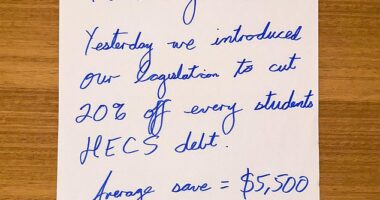 Yesterday we introduced
our legislation to cut
20% off every students
HECS debt.
Average save = $5,500